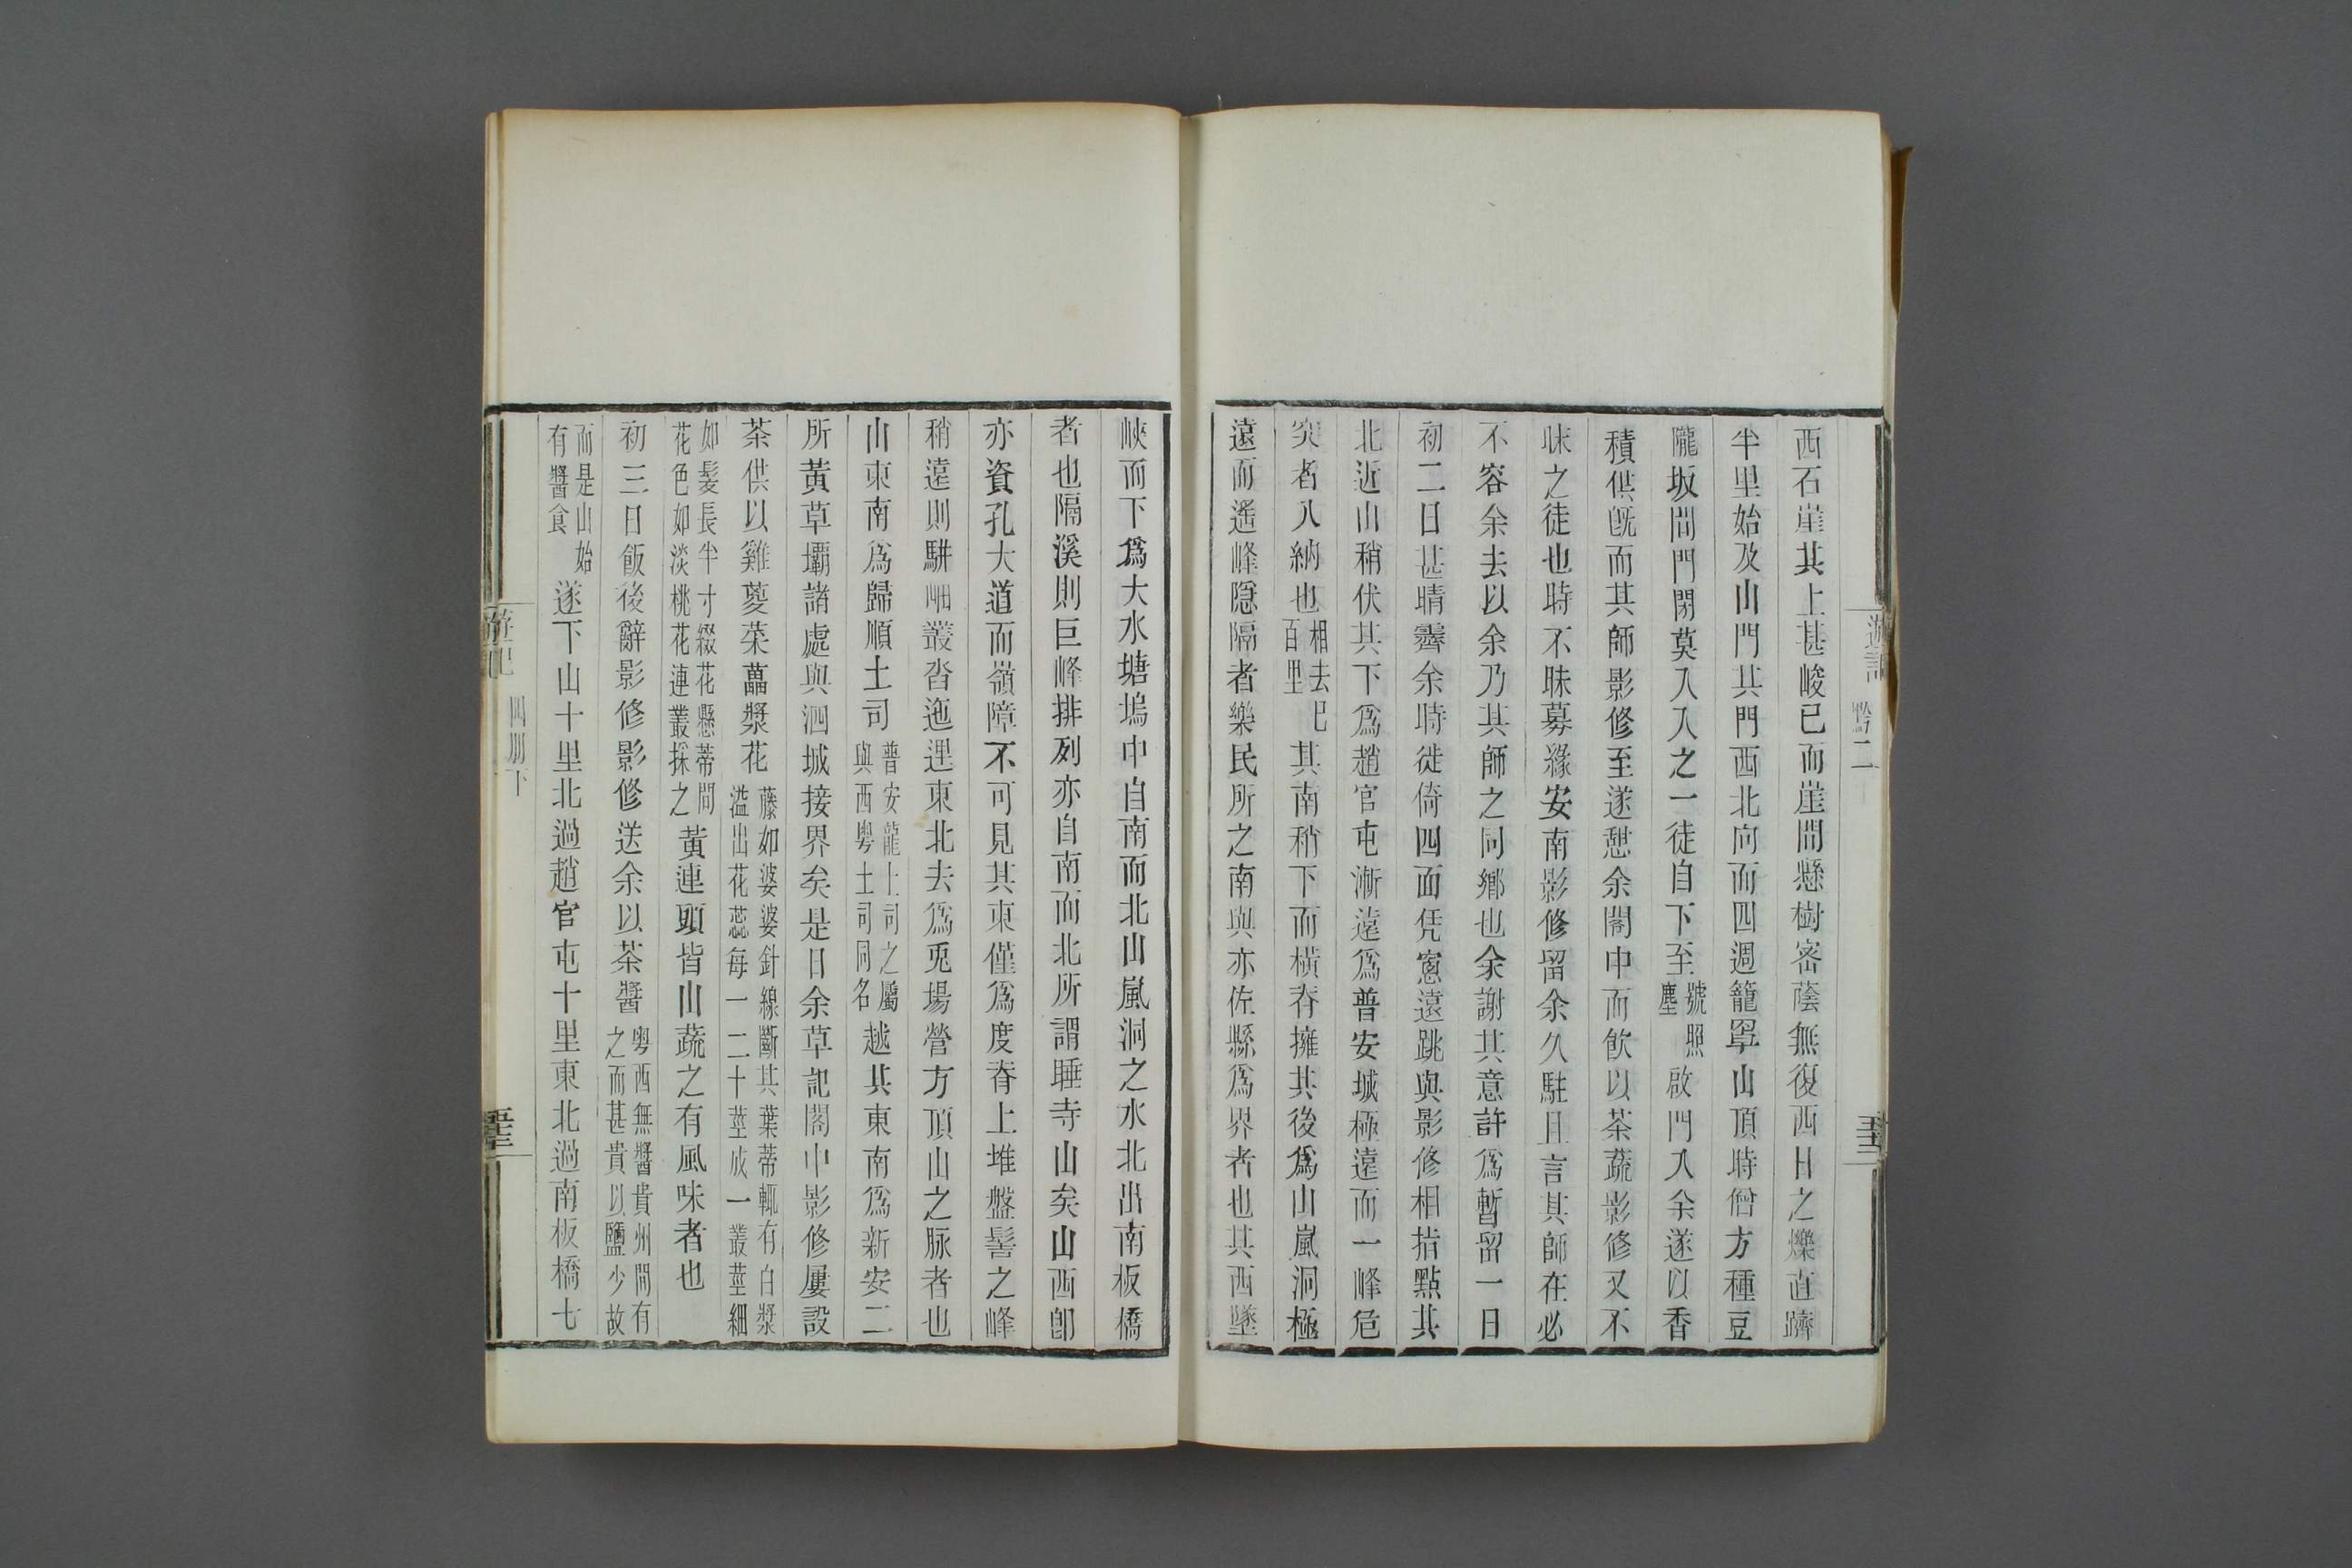 西石崖其上甚峻已而崖間懸樹密蔭無復西日之爍直躋
半里始及山門其門西北向而四週籠罩山頂時僧方種豆
隴坂間門閉莫入久之一徒自下至號照塵啟門入余遂以香
積供旣而其師影修至遂憇余閣中而飲以茶蔬影修又不
昧之徒也時不昧募緣安南影修留余久駐且言其師在必
不容余去以余乃其師之同鄉也余謝其意許爲暫留一日
初二日甚晴霽余時徙倚四面凭窻遠眺與影修相指點其
北近山稍伏其下爲趙官屯漸遠爲普安城極遠而一峰危
突者八納也相去已百里其南稍下而橫脊擁其後爲山嵐洞極
遠而遙峰隱隔者樂民所之南與亦佐縣爲界者也其西墜
遊記
黔二
峽而下爲大水塘塢中自南而北山嵐洞之水北出南板橋
者也隔溪則巨峰排列亦自南而北所謂睡寺山矣山西卽
亦資孔大道而嶺障不可見其東僅爲度脊上堆盤髻之峰
稍遠則騈岫叢沓迤邐東北去爲兎場營方頂山之脉者也
山東南爲歸順土司普安龍土司之屬與西粵土司同名越其東南爲新安二
所黃草壩諸處與泗城接界矣是日余草記閣中影修屢設
茶供以雞葼菜藟漿花藤如婆婆針線斷其葉蒂輒有白漿溢出花蕊每一二十莖成一叢莖細
如髮長半寸綴花懸蒂間花色如淡桃花連叢採之黃連頭皆山蔬之有風味者也
初三日飯後辭影修影修送余以茶醬粵西無醬貴州間有之而甚貴以鹽少故
而是山始有醬食遂下山十里北過趙官屯十里東北過南板橋七
遊記
四册下